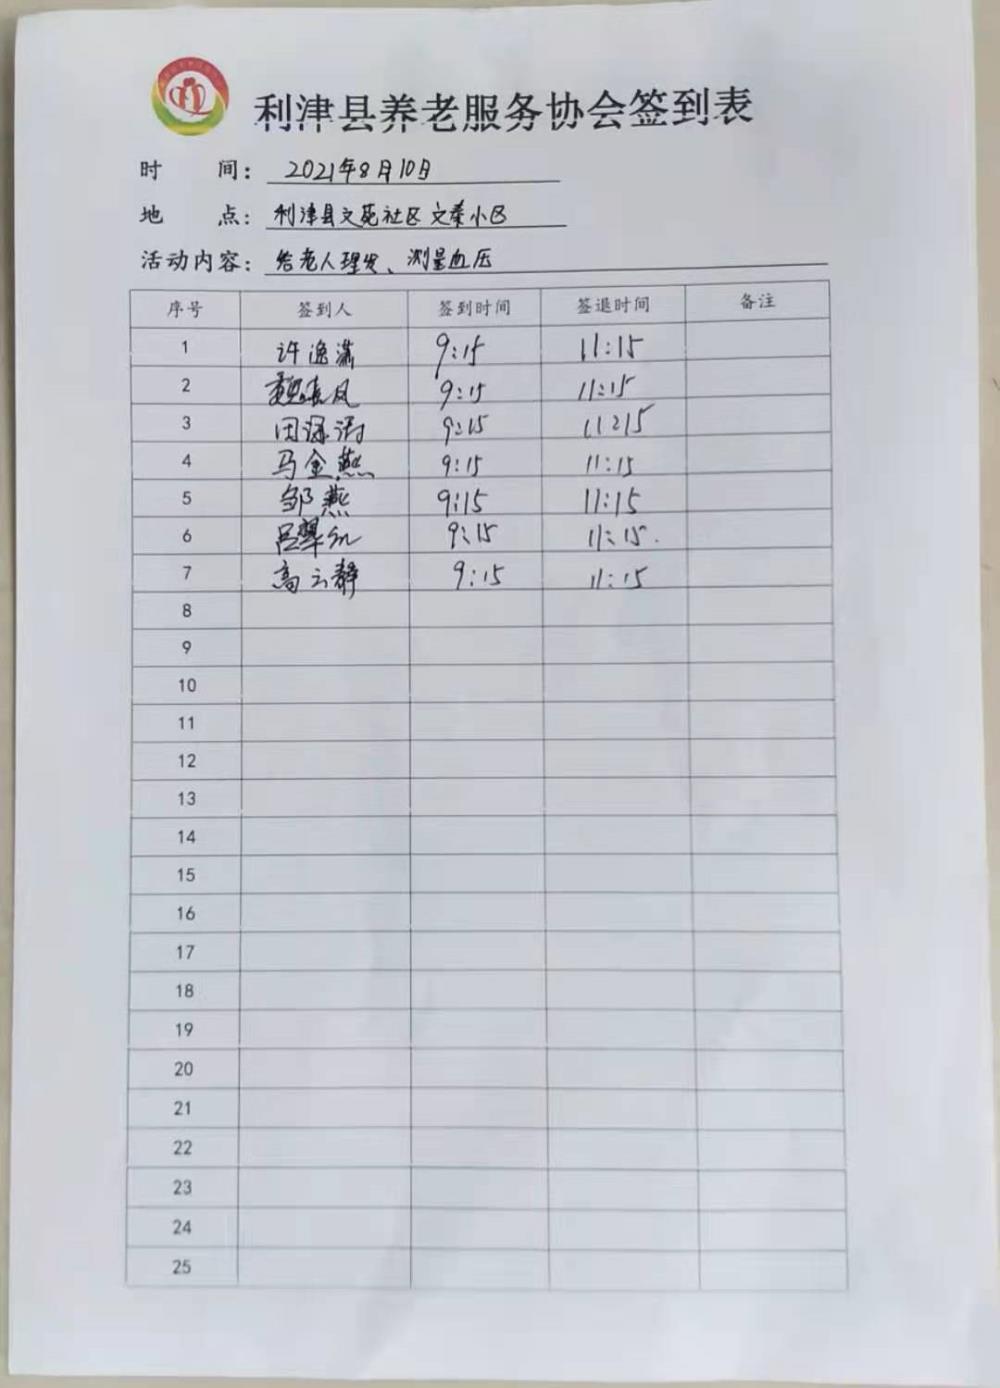 利津县养老服务协会签到表
时 间： 2021年8月10日
地 点： 利津县文苑社区文泰小区
活动内容： 给老人理发、测量血压
序号 签到人 签到时间 签退时间 备注
1 许逸潇 9:15 11:15
2 魏春凤 9:15 11:15
3 田 9:15 11:15
4 马金燕 9:15 11:15
5 邹燕 9:15 11:15
6 吕翠红 9:15 11:15.
7 高云静 9:15 11:15
8
9
10
11
12
13
14
15
16
17
18
19
20
21
22
23
24
25